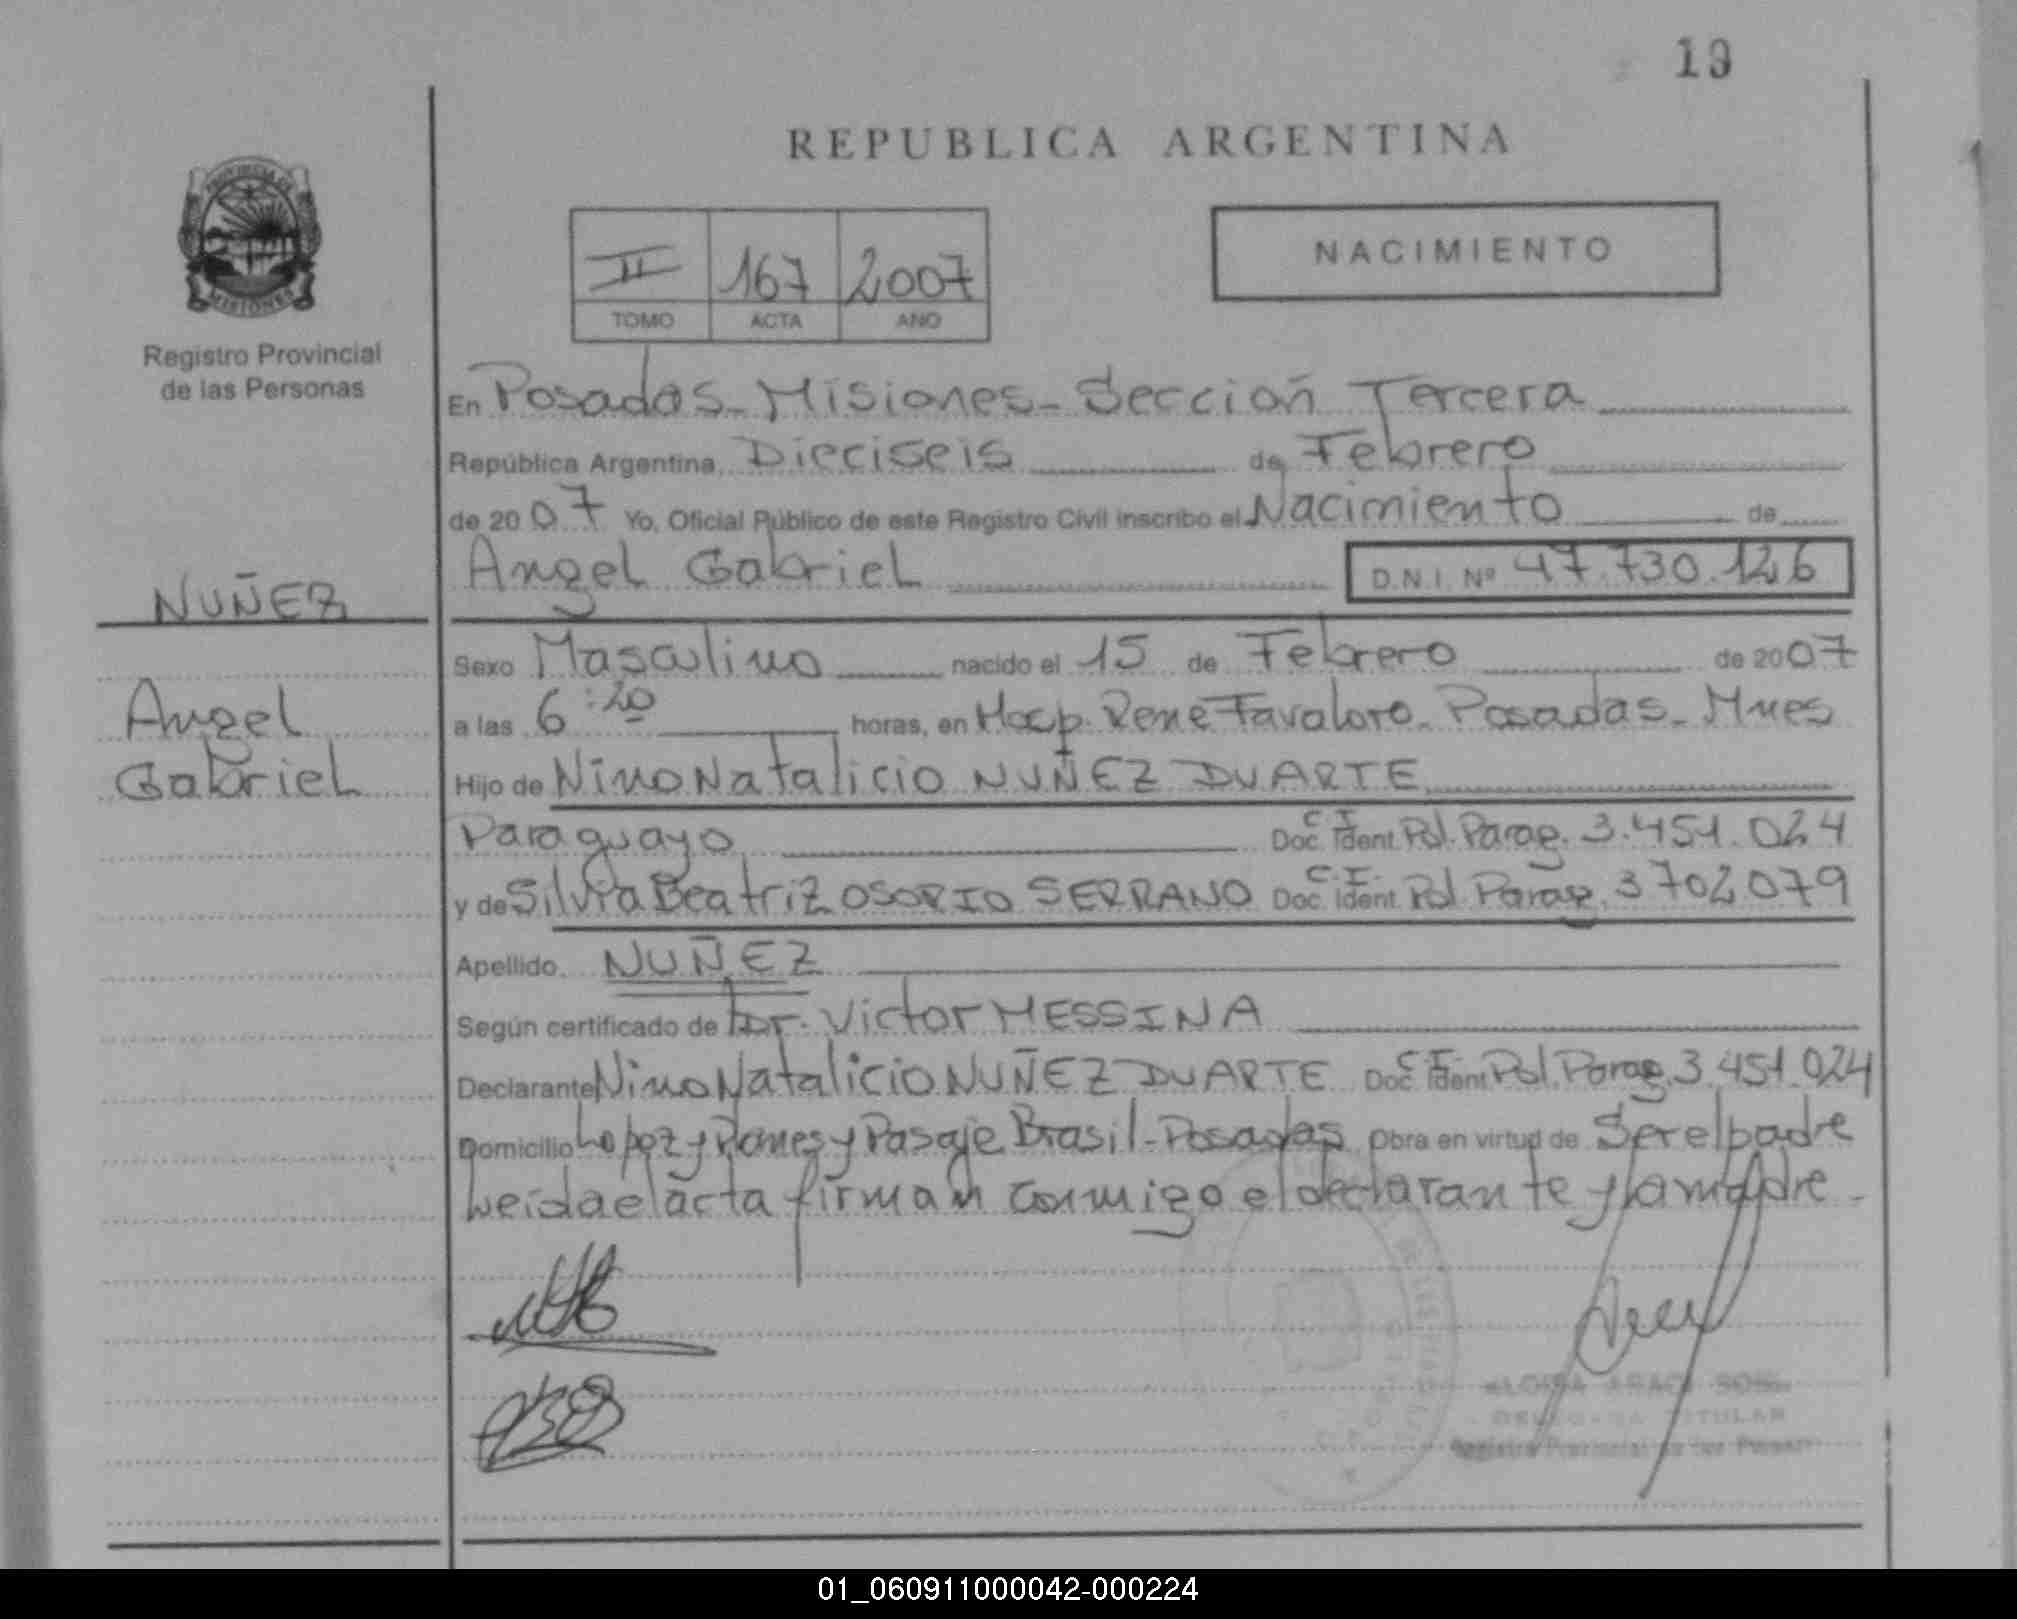 19
REPUBLICA ARGENTINA
PROVINCIA DE
MISIONES
Registro Provincial
de las Personas
II 167 2007
TOMO ACTA AÑO
NACIMIENTO
En Posadas - Misiones - Sección Tercera
República Argentina, Dieciseis de Febrero
de 2007 Yo, Oficial Público de este Registro Civil inscribo el Nacimiento de
Angel Gabriel D.N.I. Nº 47.730.126
NUÑEZ
Angel
Gabriel
Sexo Masculino nacido el 15 de Febrero de 2007
a las 6:20 horas, en Hosp. Rene Favaloro - Posadas - Mnes
Hijo de Nino Natalicio NUÑEZ DUARTE
Paraguayo Doc. Ident. C.I. Pol. Parag. 3.451.024
y de Silvia Beatriz OSORIO SERRANO Doc. Ident. C.I. Pol. Parag. 3702079
Apellido NUÑEZ
Según certificado de Dr. Victor MESSINA
Declarante Nino Natalicio NUÑEZ DUARTE Doc. Ident. C.I. Pol. Parag. 3.451.024
Domicilio Lopez y Planes y Pasaje Brasil - Posadas Obra en virtud de Ser el padre
Leída el acta firman conmigo el declarante y la madre -
DELEGADA TITULAR
Registro Provincial de las Personas
01_060911000042-000224